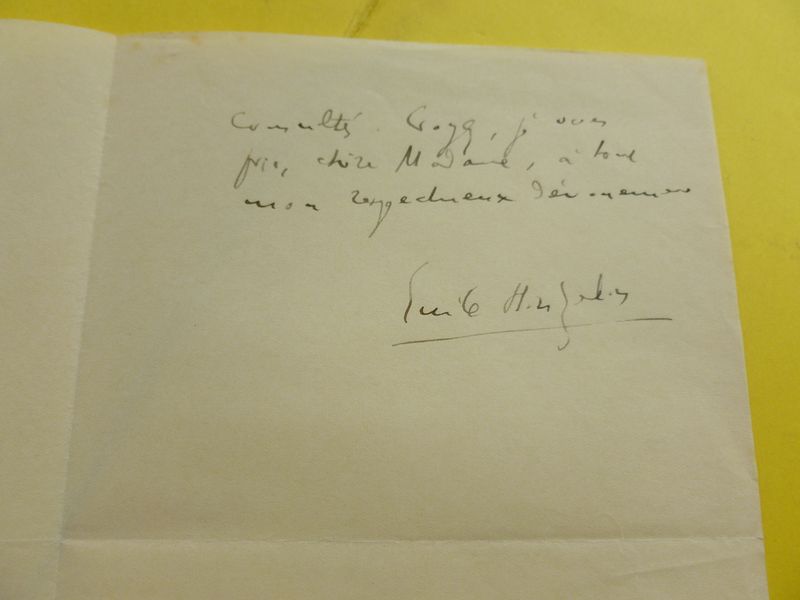 consultés. Croyez, je vous
prie, chère Madame, à tout
mon respectueux dévouement
Emile Hinzelin